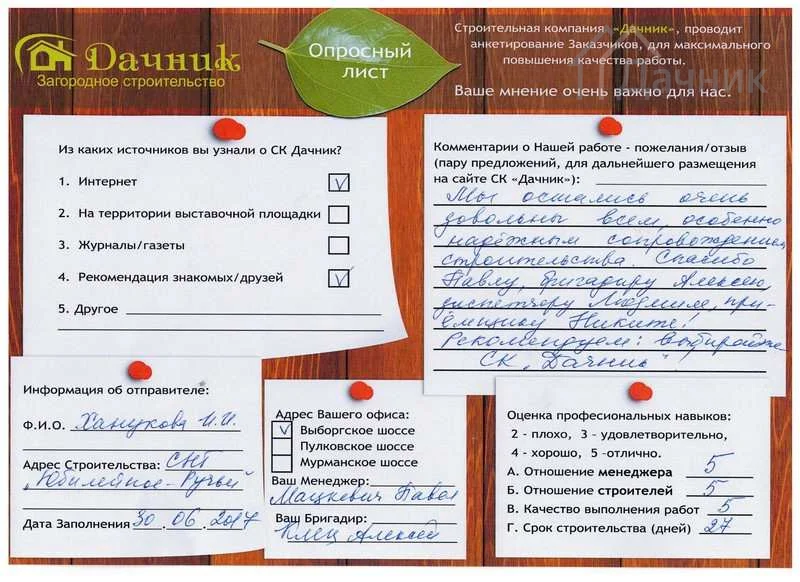 Дачник
Загородное строительство
Опросный
лист
Строительная компания «Дачник», проводит
анкетирование Заказчиков, для максимального
повышения качества работы.
Ваше мнение очень важно для нас.
Дачник
Из каких источников вы узнали о СК Дачник?
1. Интернет V
2. На территории выставочной площадки
3. Журналы/газеты
4. Рекомендация знакомых/друзей V
5. Другое
Комментарии о Нашей работе - пожелания/отзыв
(пару предложений, для дальнейшего размещения
на сайте СК «Дачник»):
Мы остались очень
довольны всем, особенно
надёжным сопровождением
строительства. Спасибо
Павлу, бригадиру Алексею,
диспетчеру Людмиле, при-
ёмщику Никите!
Рекомендуем: выбирайте
СК „Дачник"!
Информация об отправителе:
Ф.И.О. Ханукова И.И.
Адрес Строительства: СНТ
„Юбилейное-Ручьи"
Дата Заполнения 30.06.2017
Адрес Вашего офиса:
V Выборгское шоссе
Пулковское шоссе
Мурманское шоссе
Ваш Менеджер:
Мацкевич Павел
Ваш Бригадир:
Клец Алексей
Оценка профессиональных навыков:
2 - плохо, 3 - удовлетворительно,
4 - хорошо, 5 -отлично.
А. Отношение менеджера 5
Б. Отношение строителей 5
В. Качество выполнения работ 5
Г. Срок строительства (дней) 27